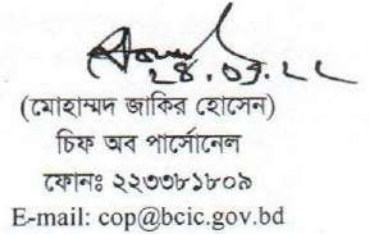 ২৪.০৩.২২
(মোহাম্মদ জাকির হোসেন)
চিফ অব পার্সোনেল
ফোনঃ ২২৩৩৮১৮০৯
E-mail: cop@bcic.gov.bd